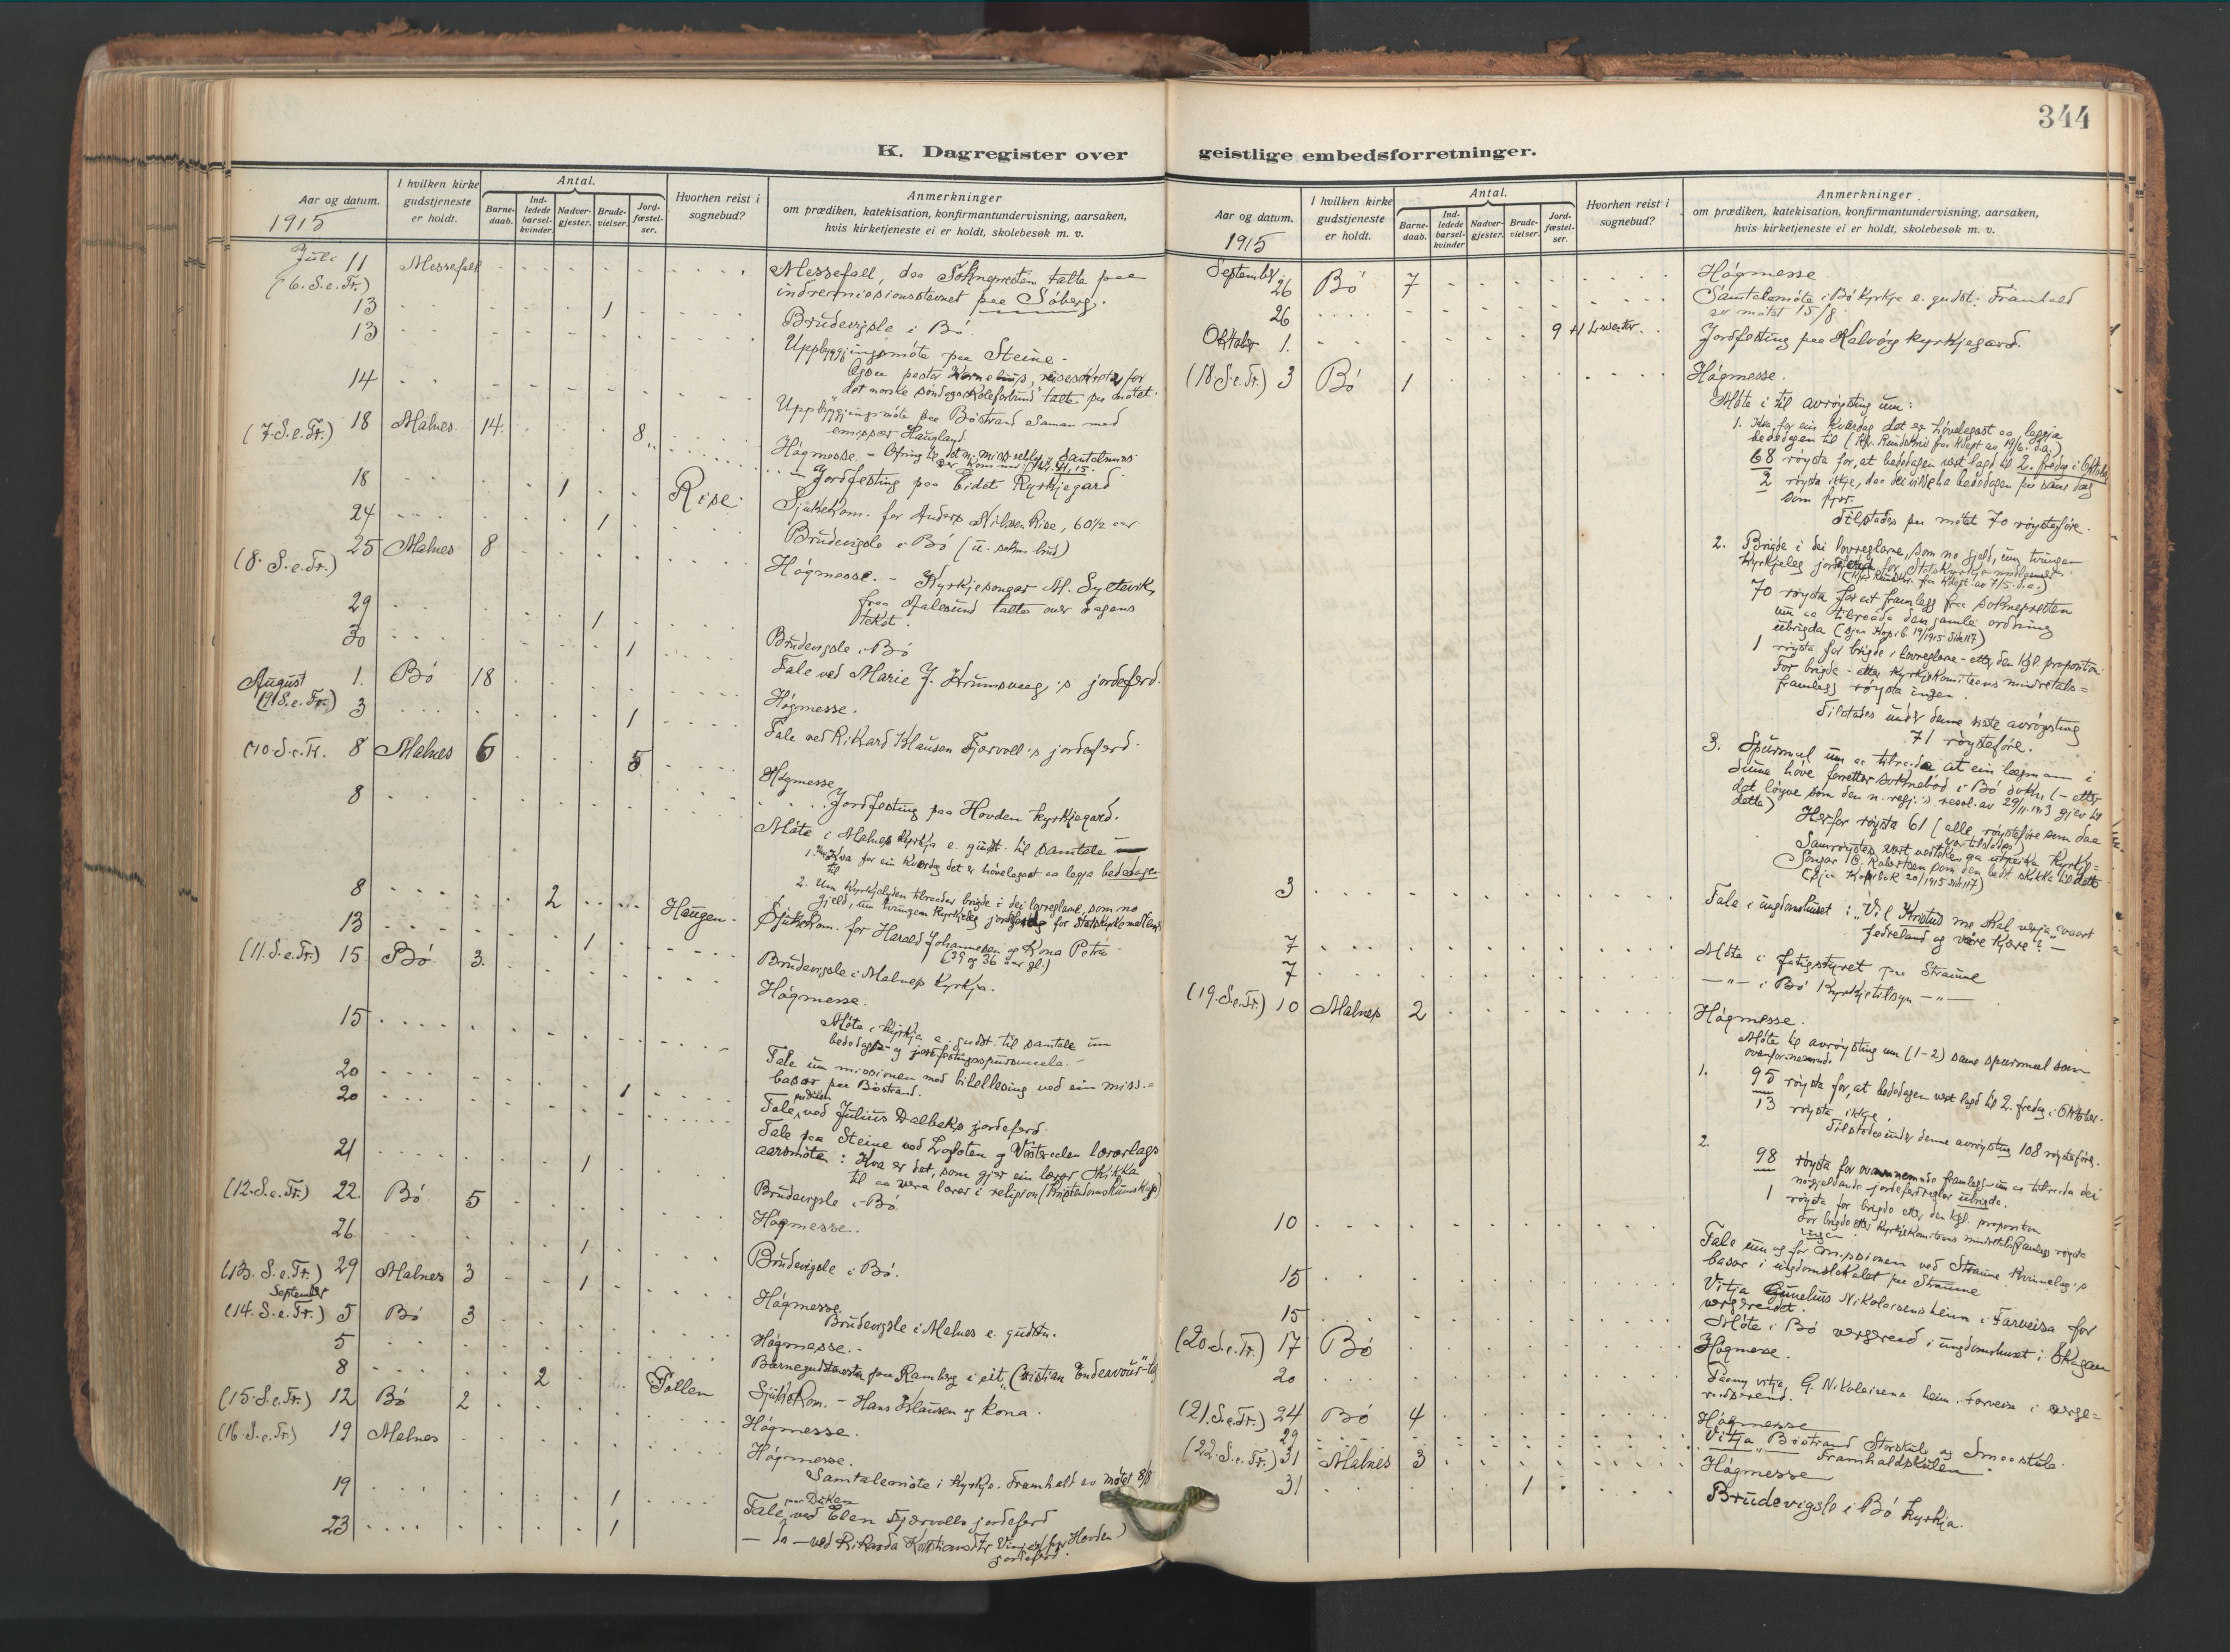 344
K. Dagregister over
Aar og datum.
1915
I hvilken kirke gudstjeneste er holdt.
Antal.
Barne-daab.
Ind-ledede barsel-kvinder.
Nadver-gjester.
Brude-vielser.
Jord-fæstel-ser.
Hvorhen reist i sognebud?
Anmerkninger
om prædiken, katekisation, konfirmantundervisning, aarsaken,
hvis kirketjeneste ei er holdt, skolebesøk m. v.
Juli 11 Messefall Messefall, daa Soknepresten talte paa
(6. S. e. Tr.) indremissionsstevnet paa Søberg.
13 1 Brudevigsle i Bø
13 Uppbyggjingsmøte paa Steine.
det norske søndagsskoleforbund talte paa møtet.
14 Uppbyggjingsmøte paa Bøstrand saman med
emissær Haugland.
(7. S. e. Tr.) 18 Malnes. 14. 8. Høgmesse.
Jordfesting paa Eidet Kyrkjegard
18 1 Rise. Sjukekom. for Anders Nilsen Rise, 60½ aar
24 1 Brudevigsle i Bø
(8. S. e. Tr.) 25 Malnes 8 Høgmesse. - Kyrkjesongar M. Syltevik,
fraa Aalesund talte over dagens
tekst.
29 1 Brudevigsle i Bø
30 1 Tale ved Marie J. Krumsvaag's jordeferd.
August 1. Bø 18 Høgmesse.
(9 S. e. Tr.)
3 1 Tale ved Rikard Klausen Fjærvoll's jordeferd.
(10. S. e. Tr. 8 Malnes 6 5 Høgmesse
Jordfesting paa Hovden kyrkjegard.
8 Møte i Malnes Kyrkja e. gudst. til samtale
1. Kva for ein kvardag det er høvelegast aa leggja bededagen
til
2. Um Kyrkjelyden tilraader brigde i dei lovreglane, som no
gjeld, um tvungen kyrkjeleg jordfesting for Statskyrkemedlemer
8 2 Haugen. Sjukekom. for Harald Johannesen og Kona Petra
(39 og 36 aar gl.)
13 1 Brudevigsle i Malnes Kyrkja.
(11. S. e. Tr.) 15 Bø 3. Høgmesse.
15 Møte i Kyrkja e. gudst. til samtale um
bededags- og jordfestingsspursmaala.
20 Tale um missionen med bibellesing ved ein miss.=
basar paa Bøstrand.
20 1 Tale ved Julius Dalbaks jordeferd.
21 Tale paa Steine ved Lofoten og Vesteraalen lærarlags
aarsmøte: Kva er det, som gjer ein lærar skikka
til aa vera lærar i religion (Kristendomskunnskap)
1 Brudevigsle i Bø.
(12. S. e. Tr.) 22. Bø 5 Høgmesse.
26. 1 Brudevigsle i Bø.
(13. S. e. Tr.) 29 Malnes 3 1 Høgmesse.
Brudevigsle i Malnes e. gudstn.
September
(14. S. e. Tr.) 5 Bø 3 Høgmesse.-
5 Barnegudstenesta paa Ramberg i eit "Cristian Endeavour"-lag
8 2 Pollen Sjukekom. - Hans Klausen og kona.
(15. S. e. Tr.) 12 Bø 2 Høgmesse.
(16. S. e. Tr.) 19 Malnes Høgmesse.
Samtalemøte i Kyrkja. Framhald av møtet 8/8
19 1 Tale ved Elen Fjærvolls jordeferd
23 1 - do - ved Rikarda
jordeferd.
geistlige embedsforretninger.
Aar og datum.
1915
I hvilken kirke gudstjeneste er holdt.
Antal.
Barne-daab.
Ind-ledede barsel-kvinder
Nadver-gjester.
Brude-vielser.
Jord-fæstel-ser.
Hvorhen reist i sognebud?
Anmerkninger
om prædiken, katekisation, konfirmantundervisning, aarsaken,
hvis kirketjeneste ei er holdt, skolebesøk m. v.
September 26 Bø 7 Høgmesse
26 Samtalemøte i Bø Kyrkje e. gudst. Framhald
av møtet 15/8.
Oktober 1. 9 Jordfesting paa Kalvøy kyrkjegard.
(18 S. e. Tr.) 3 Bø 1 Høgmesse.
Møte i til avrøysting um:
1. Kva for ein kvardag det er høvelegast aa leggja
bededagen til
68 røysta for, at bededagen vert lagd til 2. fredag i Oktober
2 røysta ikkje, daa dei vilde ha bededagen paa same dag
som fyrr.
Tilstades paa møtet 70 røysteføre.
2. Brigde i dei lovreglane, som no gjeld, um tvungen
Kyrkjeleg jordferd for Statskyrkjemedlemer
70 røysta for eit framlegg fraa soknepresten
um aa tilraada den gamle ordning
ubrigda (sjaa Kopib. 19/1915 side 117)
1 røysta for brigde i lovreglane - etter den Kgl. proposition.
For brigde - etter kyrkjekomiteens mindretals=
framlegg røysta ingen.
Tilstades under denne siste avrøysting
71 røysteføre.
3. Spursmaal um aa tilraade at ein lægmann i
sume høve forretter soknebod i Bø sokn (- etter
det løyve som den n. regj.'s resol. av 29/11. 1913 gjev til
dette)
Herfor røysta 61 (alle røysteføre som daa
var tilstades)
Samrøystes vart vedteken aa utpeika Kyrkje=
songar O. Robertsen som den best skikka til dette
(Sjaa Kopibok 20/1915 side 117)
3 Tale i ungdomshuset: "Vil Kristus me skal verja vaart
fedreland og våre kjære"? -
7 Møte i fatigstyret paa Straume
7 -"- i Bø Kyrkjetilsyn -"-
(19. S. e. Tr.) 10 Malnes 2 Høgmesse.
Møte til avrøysting um (1-2) same spursmaal som
ovanfornemnde
1. 95 røysta for, at bededagen vert lagd til 2. fredag i Oktober.
13 røysta ikkje.
Tilstades under denne avrøysting 108 røysteføre.
2. 98 røysta for ovannemnde framlegg um aa tilraada dei
nogjeldande jordeferdreglar ubrigda.
1 røysta for brigde etter den kgl. proposition
For brigde etter Kyrkjekomiteens mindretalsframlegg røysta
ingen.
10 Tale um og for Missionen ved Straume Kvinnelag's
basar i ungdomslokalet paa Straume
15 Vitja Nikolaisens heim i Farveisa for
vergeraadet.
15 Møte i Bø vergeraad i ungdomshuset i Skagen
(20. S. e. Tr.) 17 Bø Høgmesse.
20 Paany vitja G. Nikolaisens heim i Farveisa i verge=
raadsærend.
(21. S. e. Tr.) 24 Bø 4 Høgmesse
29 Vitja Bøstrand Storskule og Smaaskule.
Framhaldsskulen
(22. S. e. Tr.) 31 Malnes 3 Høgmesse
31 1 Brudevigsle i Bø Kyrkja.